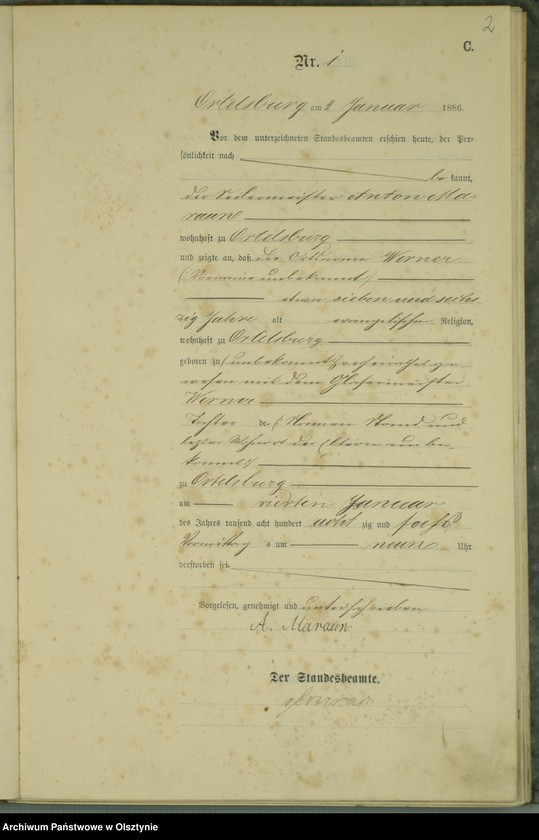 2
C.
Nr. 1
Ortelsburg am 2 Januar 1886.
Vor dem unterzeichneten Standesbeamten erschien heute, der Per-
sönlichkeit nach
be kannt,
der Seilermeister Anton Ma-
raun
wohnhaft zu Ortelsburg
und zeigte an, daß die Ortsarme Werner
(:Vorname unbekannt:)
etwa sieben und sechs
zig Jahre alt evangelischer Religion,
wohnhaft zu Ortelsburg
geboren zu (unbekannt) verheirathet ge-
wesen mit dem Glasermeister
Werner
Tochter de (:Namen Stand und
letzter Wohnort der Eltern unbe-
kannt:)
zu Ortelsburg
am Januar
des Jahres tausend acht hundert acht zig und sechs
Vormittag s um neun Uhr
verstorben sei.
Vorgelesen, genehmigt und unterschrieben
A. Maraun
Der Standesbeamte.
Archiwum Państwowe w Olsztynie